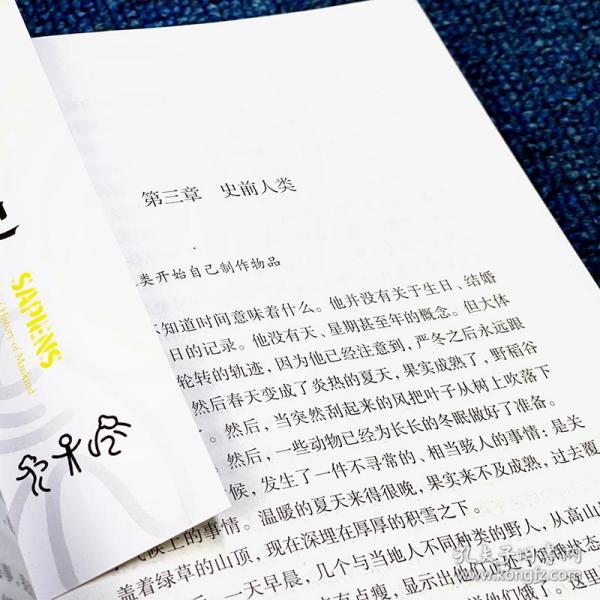 SAPIENS
History of Mankind
第三章 史前人类
类开始自己制作物品
知道时间意味着什么。他并没有关于生日、结婚
日的记录。他没有天、星期甚至年的概念。但大体
轮转的轨迹，因为他已经注意到，严冬之后永远跟
然后春天变成了炎热的夏天，果实成熟了，野稻谷
。然后，当突然刮起来的风把叶子从树上吹落下
然后，一些动物已经为长长的冬眠做好了准备。
候，发生了一件不寻常的、相当骇人的事情；是关
气候上的事情。温暖的夏天来得很晚，果实来不及成熟，过去覆
盖着绿草的山顶，现在深埋在厚厚的积雪之下。
一天早晨，几个与当地人不同种类的野人，从高山
有点瘦，显示出他们
他们饿了。这里
孔夫子旧书网
www.kongfz.com